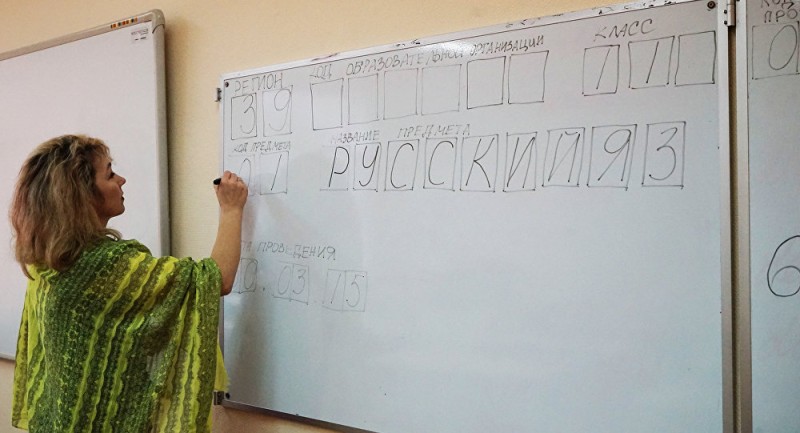 РЕГИОН КОД ОБРАЗОВАТЕЛЬНОЙ ОРГАНИЗАЦИИ КЛАСС
39 11
КОД ПРЕДМЕТА НАЗВАНИЕ ПРЕДМЕТА
01 РУССКИЙ ЯЗ
ПРОВЕДЕНИЯ
0.03.15
КОД
ПРО
0
6